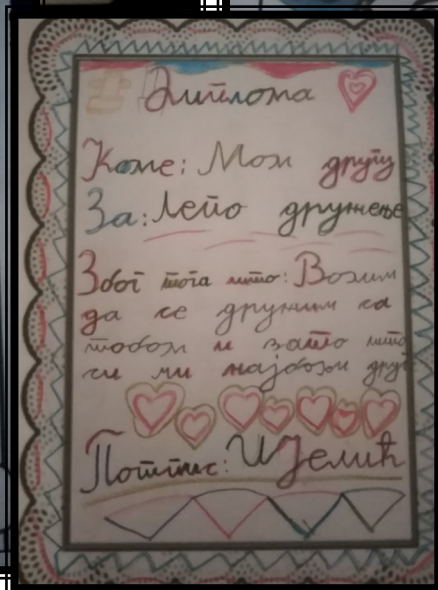 Диплома
Коме: Мом другу
За: Лепо дружење
Због тога што: Волим
да се дружим са
тобом и зато што
си ми најбољи друг
Потпис: И Јелић